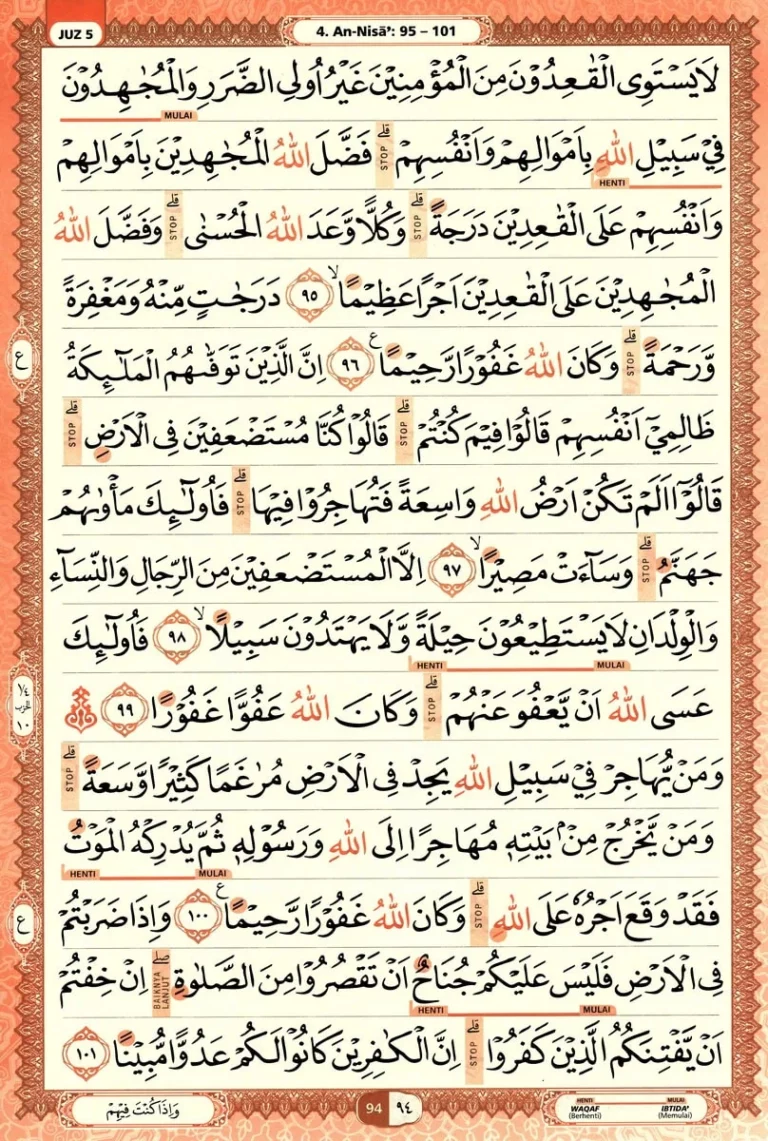 JUZ 5
4. An-Nisā': 95 – 101
لَا يَسْتَوِى الْقٰعِدُوْنَ مِنَ الْمُؤْمِنِيْنَ غَيْرُ اُولِى الضَّرَرِ وَالْمُجٰهِدُوْنَ
MULAI
فِيْ سَبِيْلِ اللّٰهِ بِاَمْوَالِهِمْ وَاَنْفُسِهِمْ ۗ STOP فَضَّلَ اللّٰهُ الْمُجٰهِدِيْنَ بِاَمْوَالِهِمْ
HENTI
وَاَنْفُسِهِمْ عَلَى الْقٰعِدِيْنَ دَرَجَةً ۗ STOP وَكُلًّا وَّعَدَ اللّٰهُ الْحُسْنٰى ۗ STOP وَفَضَّلَ اللّٰهُ
الْمُجٰهِدِيْنَ عَلَى الْقٰعِدِيْنَ اَجْرًا عَظِيْمًا ۙ ٩٥ دَرَجٰتٍ مِّنْهُ وَمَغْفِرَةً
وَّرَحْمَةً ۗ STOP وَكَانَ اللّٰهُ غَفُوْرًا رَّحِيْمًا ع ٩٦ اِنَّ الَّذِيْنَ تَوَفّٰىهُمُ الْمَلٰۤىِٕكَةُ
ع
ظَالِمِيْٓ اَنْفُسِهِمْ قَالُوْا فِيْمَ كُنْتُمْ ۗ STOP قَالُوْا كُنَّا مُسْتَضْعَفِيْنَ فِى الْاَرْضِ ۗ STOP
قَالُوْٓا اَلَمْ تَكُنْ اَرْضُ اللّٰهِ وَاسِعَةً فَتُهَاجِرُوْا فِيْهَا ۗ STOP فَاُولٰۤىِٕكَ مَأْوٰىهُمْ
جَهَنَّمُ ۗ STOP وَسَاۤءَتْ مَصِيْرًا ۙ ٩٧ اِلَّا الْمُسْتَضْعَفِيْنَ مِنَ الرِّجَالِ وَالنِّسَاۤءِ
وَالْوِلْدَانِ لَا يَسْتَطِيْعُوْنَ حِيْلَةً وَّلَا يَهْتَدُوْنَ سَبِيْلًا ۙ ٩٨ فَاُولٰۤىِٕكَ
MULAI HENTI
عَسَى اللّٰهُ اَنْ يَّعْفُوَ عَنْهُمْ ۗ STOP وَكَانَ اللّٰهُ عَفُوًّا غَفُوْرًا ٩٩
١/٤ الحزب ١٠
وَمَنْ يُّهَاجِرْ فِيْ سَبِيْلِ اللّٰهِ يَجِدْ فِى الْاَرْضِ مُرٰغَمًا كَثِيْرًا وَّسَعَةً ۗ STOP
وَمَنْ يَّخْرُجْ مِنْۢ بَيْتِهٖ مُهَاجِرًا اِلَى اللّٰهِ وَرَسُوْلِهٖ ثُمَّ يُدْرِكْهُ الْمَوْتُ
MULAI HENTI
فَقَدْ وَقَعَ اَجْرُهٗ عَلَى اللّٰهِ ۗ STOP وَكَانَ اللّٰهُ غَفُوْرًا رَّحِيْمًا ع ١٠٠ وَاِذَا ضَرَبْتُمْ
ع
فِى الْاَرْضِ فَلَيْسَ عَلَيْكُمْ جُنَاحٌ اَنْ تَقْصُرُوْا مِنَ الصَّلٰوةِ ۖ BAIKNYA LANJUT اِنْ خِفْتُمْ
MULAI HENTI
اَنْ يَّفْتِنَكُمُ الَّذِيْنَ كَفَرُوْا ۗ STOP اِنَّ الْكٰفِرِيْنَ كَانُوْا لَكُمْ عَدُوًّا مُّبِيْنًا ١٠١
وَاِذَا كُنْتَ فِيْهِمْ
94 ٩٤
HENTI MULAI
WAQAF IBTIDA'
(Berhenti) (Memulai)